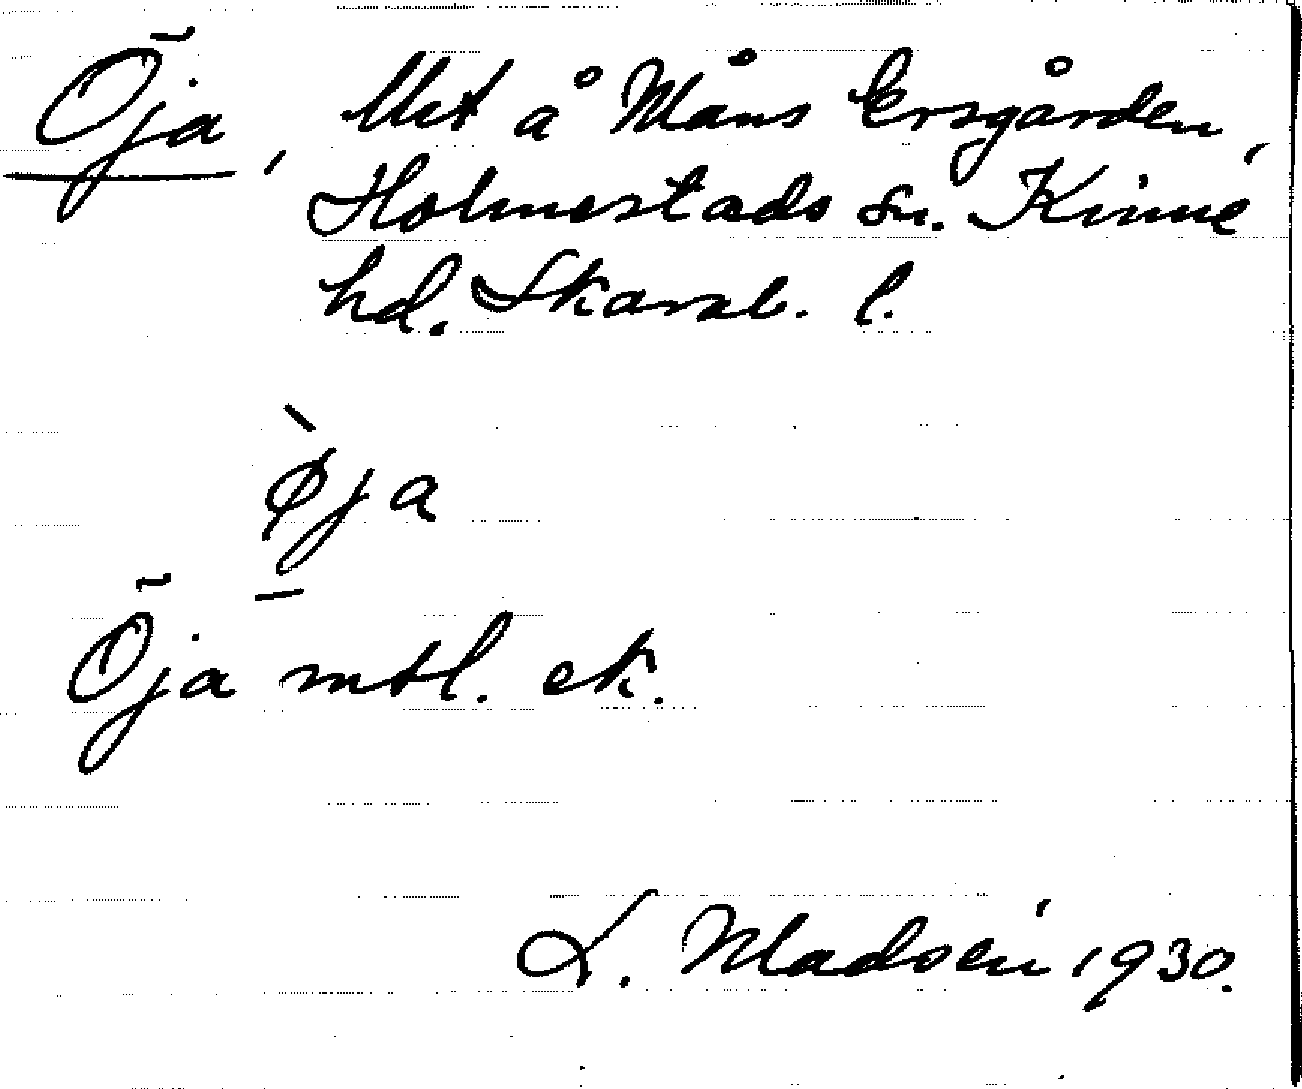 Öja, Utt å Måns Ersgården,
Holmestads sn. Kinne
hd. Skarab. l.
øja
Öja mtl. ek.
L. Madsén 1930.